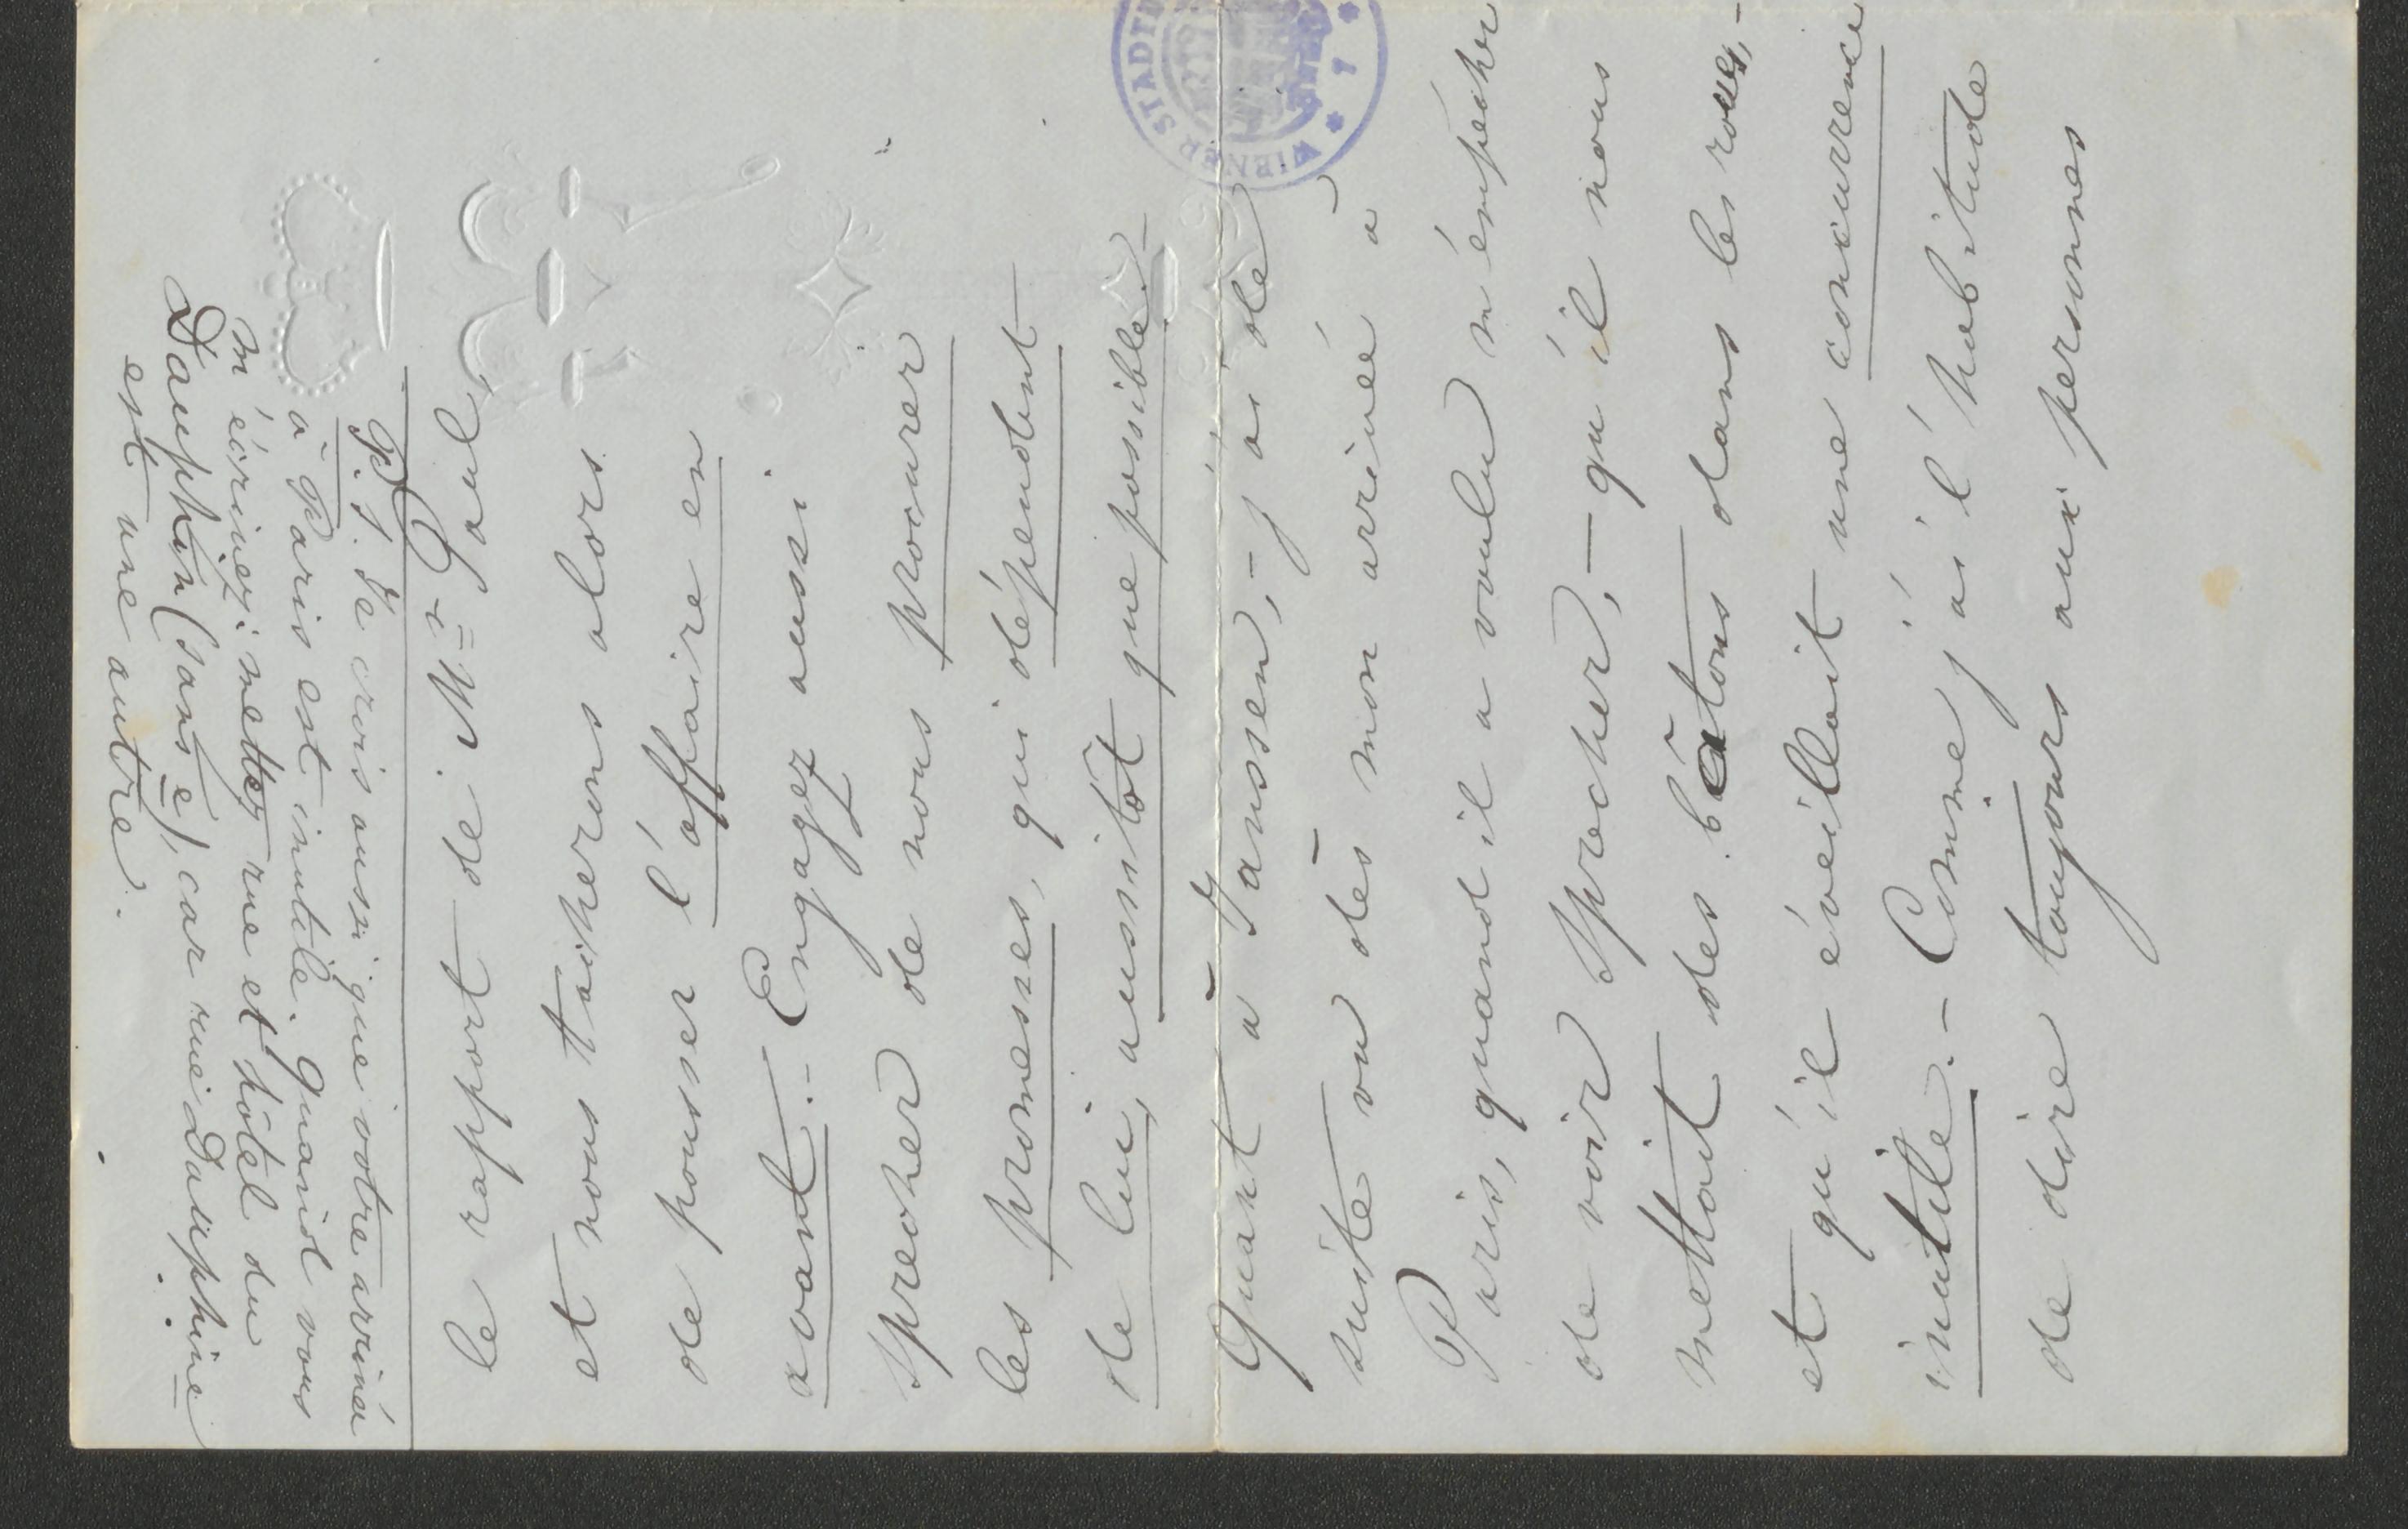 est une autre.
Dauphin (sans e), car rue Dauphine
m'écrivez: mettez rue et hôtel du
à Paris est inutile. Quand vous
P.S. Je crois aussi que votre arrivée
le rapport de Mr Paul,
et nous tâcherons alors
de pousser l'affaire en
avant. - Engagez aussi
Sprecher de nous procurer
les promesses, qui dépendent
de lui, aussitôt que possible. -
Quant à Janssen, - j'ai de
suite vu dès mon arrivée à
Paris, quand il a voulu m'émpécher
de voir Sprecher, - qu'il nous
mettait des bâtons dans les roues, -
et qu'il éveillait une concurrence
inutile. - Comme j'ai l'habitude
de dire toujours aux personnes
WIENER STADTB
* 1 *